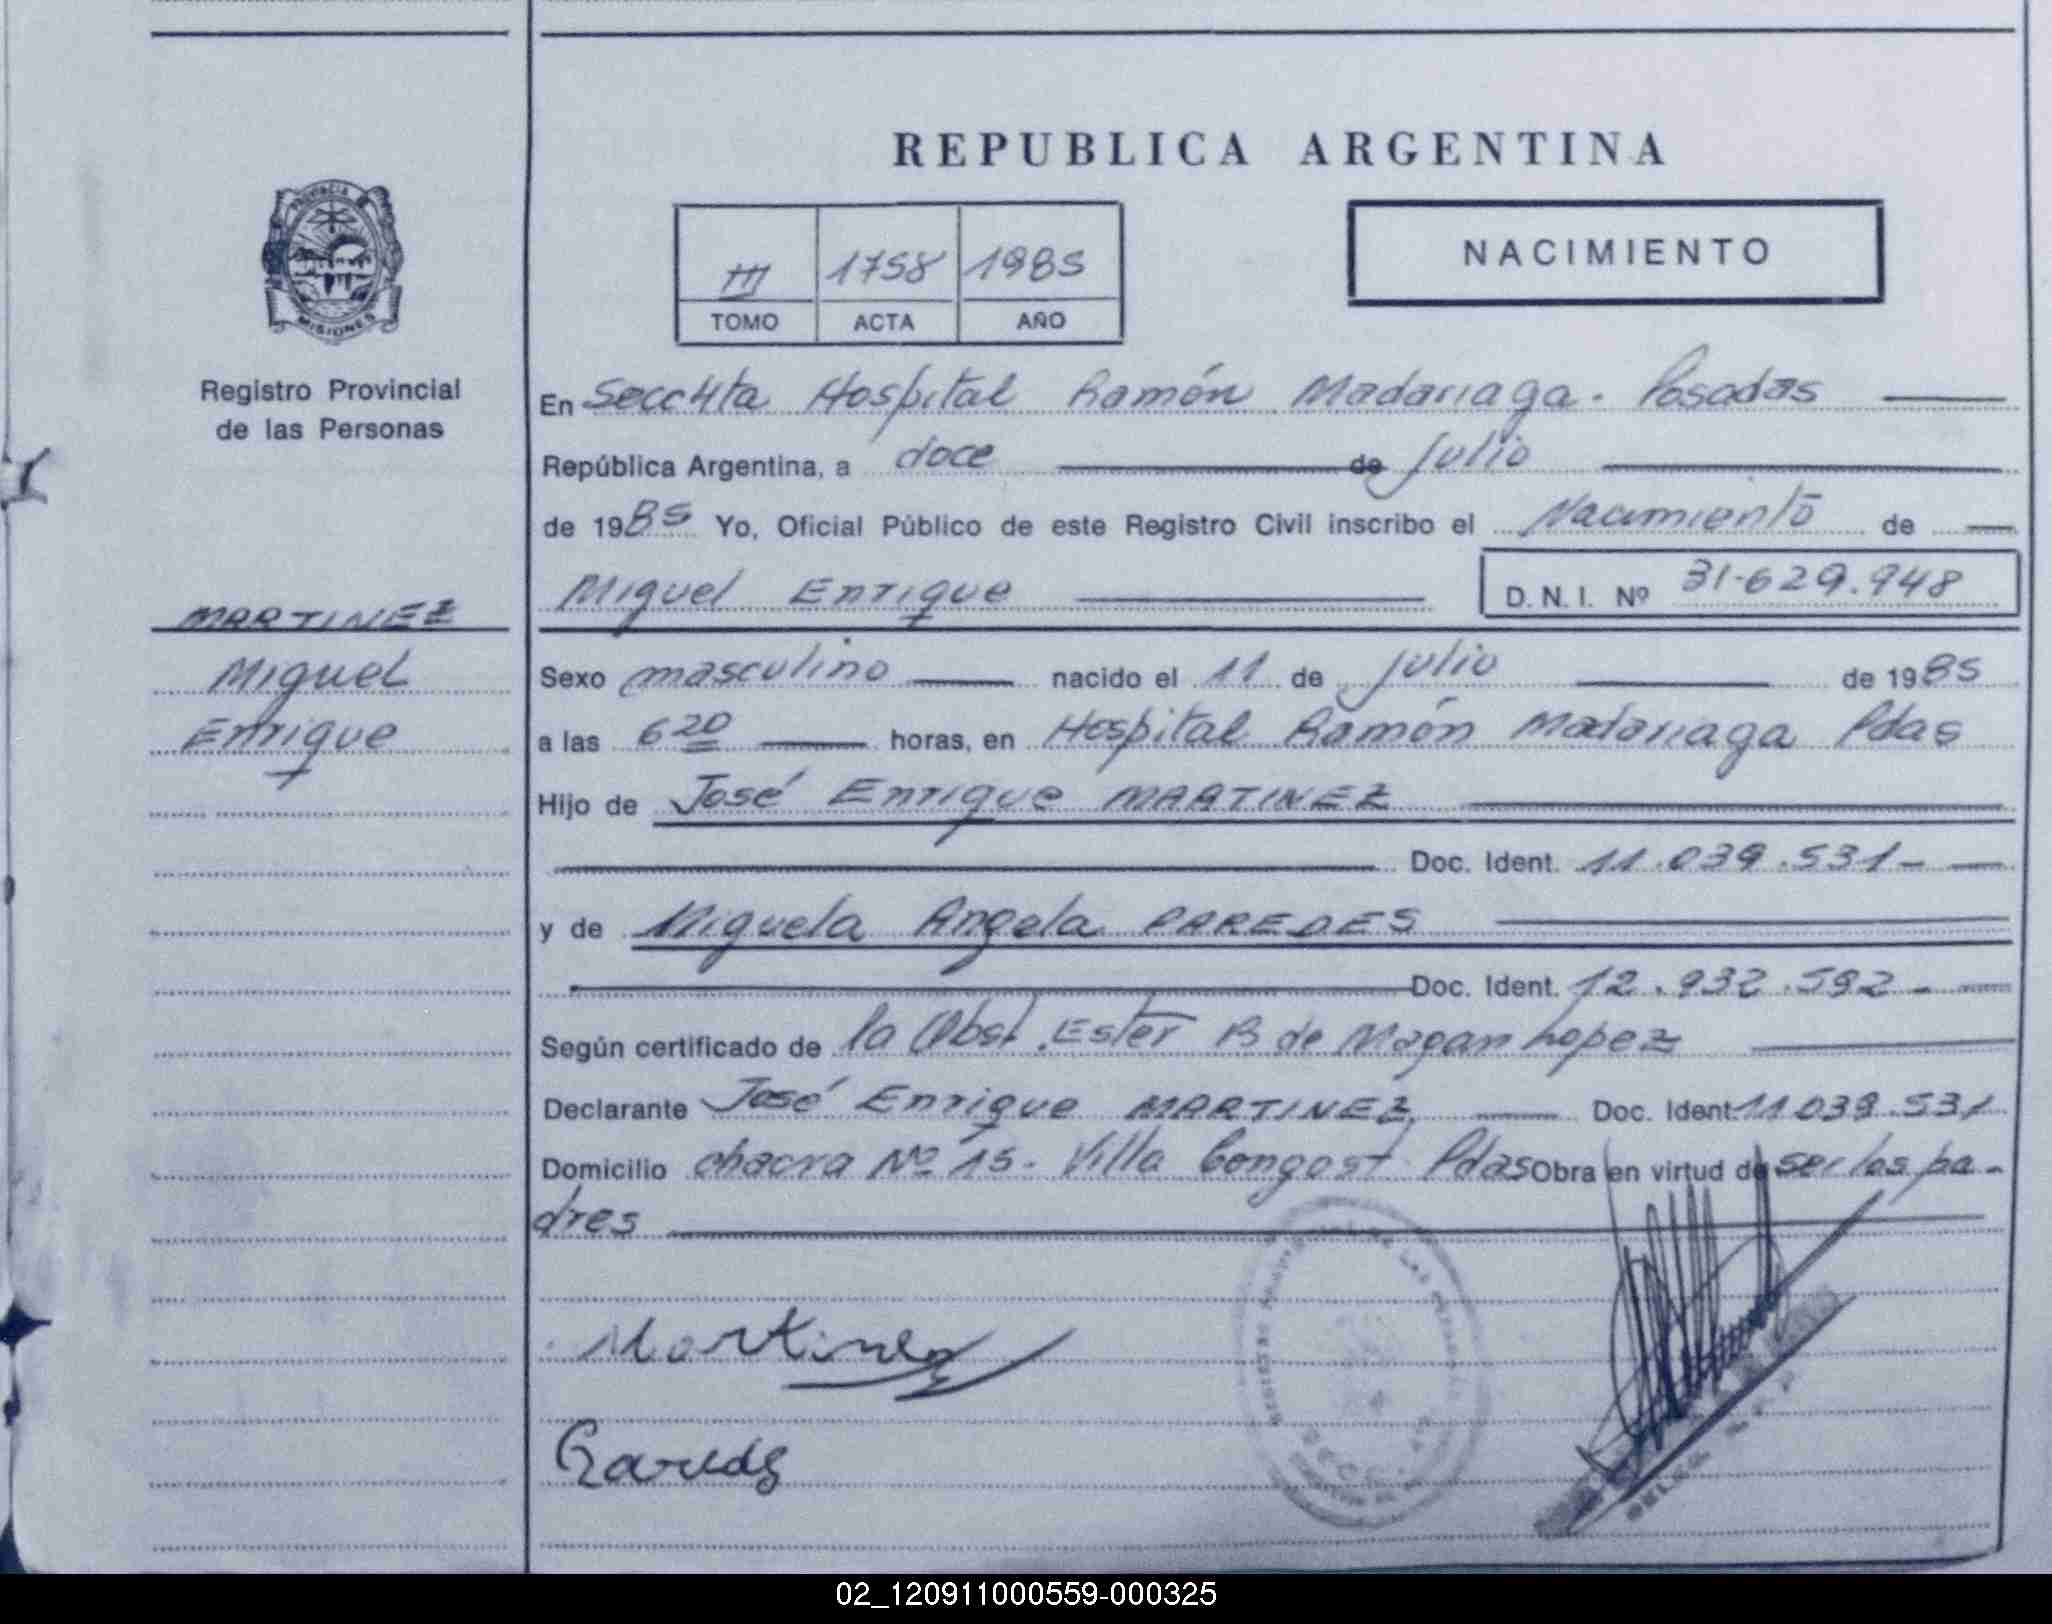 REPUBLICA ARGENTINA
PROVINCIA DE
MISIONES
Registro Provincial
de las Personas
III 1758 1985
TOMO ACTA AÑO
NACIMIENTO
En Secc 4ta Hospital Ramón Madariaga. Posadas
República Argentina, a doce de julio
de 1985 Yo, Oficial Público de este Registro Civil inscribo el Nacimiento de
Miguel Enrique D.N.I. Nº 31.629.948
MARTINEZ
Miguel
Enrique
Sexo masculino nacido el 11 de julio de 1985
a las 6 20 horas, en Hospital Ramón Madariaga Pdas
Hijo de José Enrique MARTINEZ
Doc. Ident. 11.039.531-
y de Miguela Angela PAREDES
Doc. Ident. 12.932.592-
Según certificado de la Obst. Ester B de Magan Lopez
Declarante José Enrique MARTINEZ Doc. Ident. 11.039.531
Domicilio chacra Nº 15. Villa Bongost Pdas Obra en virtud de ser los pa-
dres
Martinez
Paredes
02_120911000559-000325